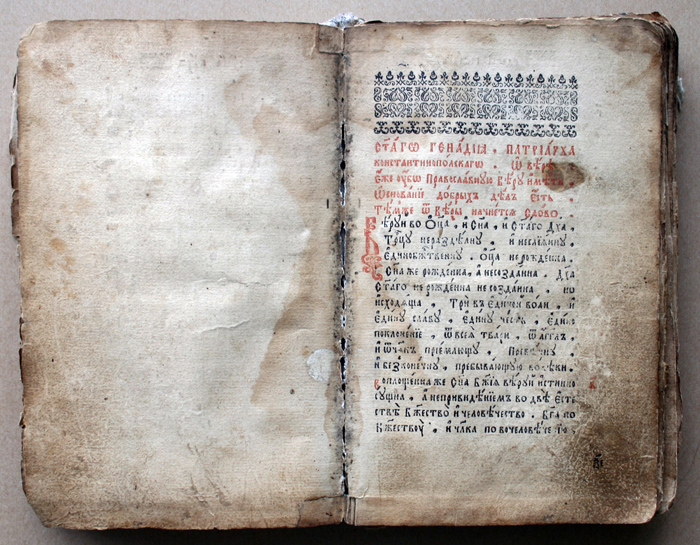 СТА́ГѠ ГЕНА́ДЇѦ . ПАТРЇА́РХА
КОНСТАНТИНОПОЛСКАГѠ . Ѡ ВѢ́РѢ
Е́ЖЕ ОУ҆́БѠ ПРАВОСЛА́ВНУЮ ВѢ́РУ И҆МѢ́ТИ
Ѡ҆СНОВА́НЇЕ ДО́БРЫХЪ ДѢ́ЛЪ Е҆́СТЬ .
ТѢ́МЖЕ Ѿ ВѢ́РЫ НАЧНЕ́ТСѦ СЛО́ВО .
Вѣ́руй во Ѻ҆ц҃а̀ . и҆ Сн҃а . и҆ Ст҃а́го Дх҃а
Трⷪ҇цу нераздѣ́лну . и҆ несли́ѧнну .
Е҆динобж҃ественну . Ѻ҆ц҃а̀ нерожде́нна .
Сн҃а же рожде́нна , а҆ несозда́нна . Дх҃а
Ст҃а́го не рожде́нна не созда́нна . но
и҆сходѧ́ща . Трѝ въ є҆ди́ной во́ли . и҆
Е҆ди́ну сла́ву . Е҆ди́ну че́сть . Е҆ди́но
поклоне́нїе . Ѿ всеѧ̀ тва́ри . Ѿ а҆́гг҃лъ .
и҆ Ѿ чл҃къ прїе́млющу . Превѣ́чну .
и҆ безконе́чну . пребыва́ющу во вѣ́ки .
Воплоще́нна же Сн҃а Бж҃їѧ вѣ́руй и҆́стинно
су́щна . а҆ непривидѣ́нїемъ во двѣ̀ Е҆сте
ствѣ̀ Бж҃ество̀ и҆ человѣ́чество . Бг҃а по
Бж҃еству̀ . и҆ чл҃ка по вочеловѣ́че то